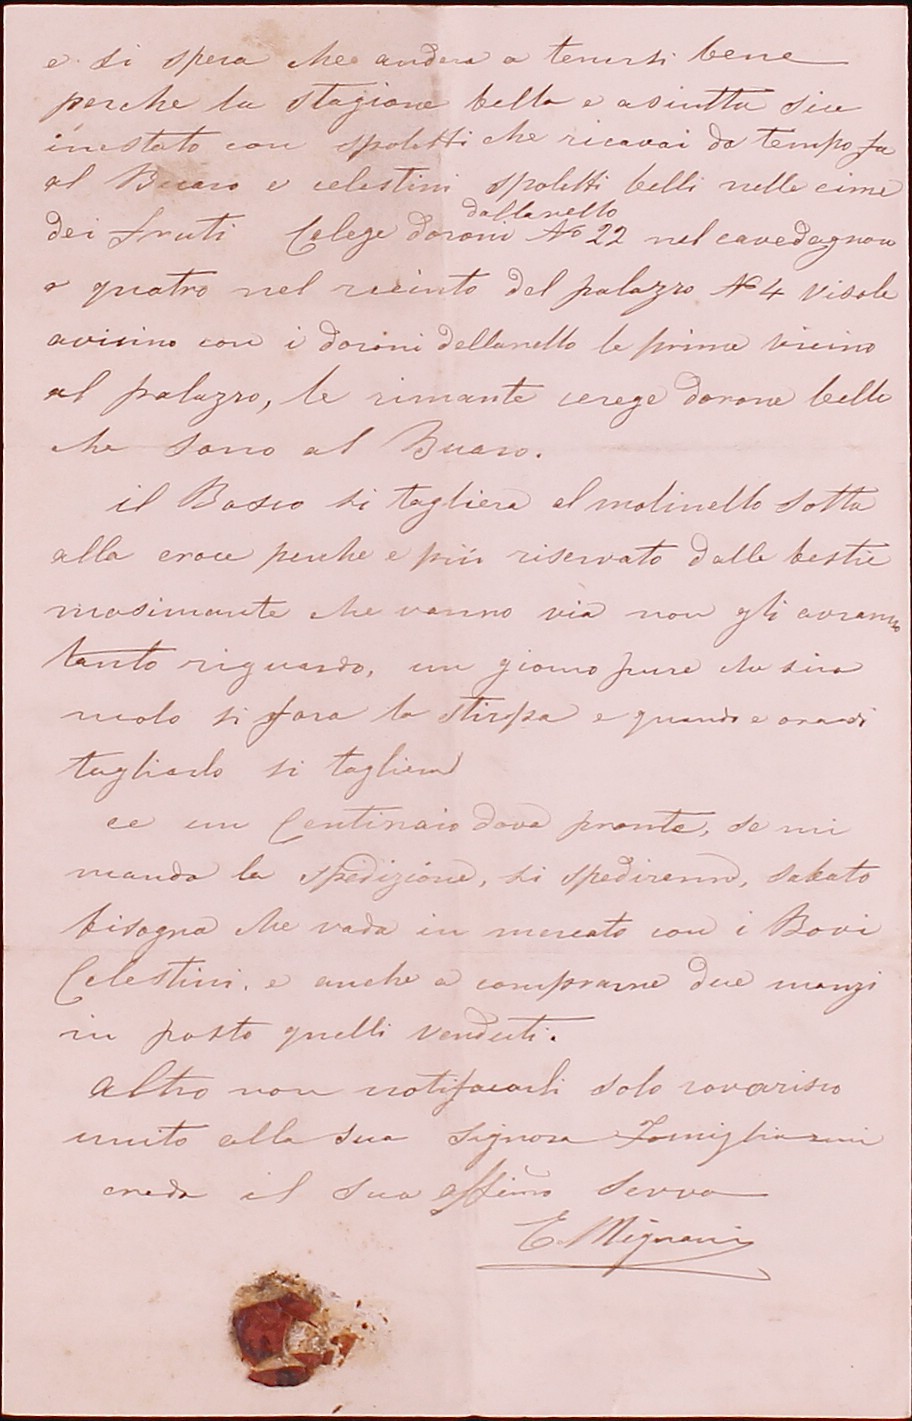 e si spera che andera a tenersi bene
perche la stagione bella e asiutta sie
inestato con spoletti che ricavai da tempo fa
al Buaro e celestini spoletti belli nelle cime
dallanello
dei fruti Celege doroni No 22 nel cavedagnon
e quatro nel recinto del palazzo No 4 visole
avicino con i doroni dellanello le prime vicino
al palazzo, le rimante cerege dorone belle
che sono al Buaro.
il Bosco si tagliera al molinello sotto
alla croce perche e più riservato dalle bestie
masimante che vanno via non gli avranno
tanto riguardo, un giorno pure che sira
molo si fara la stirpa e quando e ora di
tagliarlo si tagliera
ce un Centinaio dova pronte, se mi
manda la spedizione, si spediremo, sabato
bisogna che vada in mercato con i Bovi
Celestini, e anche a comprarne due manzi
in posto quelli venduti.
Altro non notificarli solo rovarisco
unito alla sua Signora Famiglia mi
creda il suo affimo servo
E. Mignani